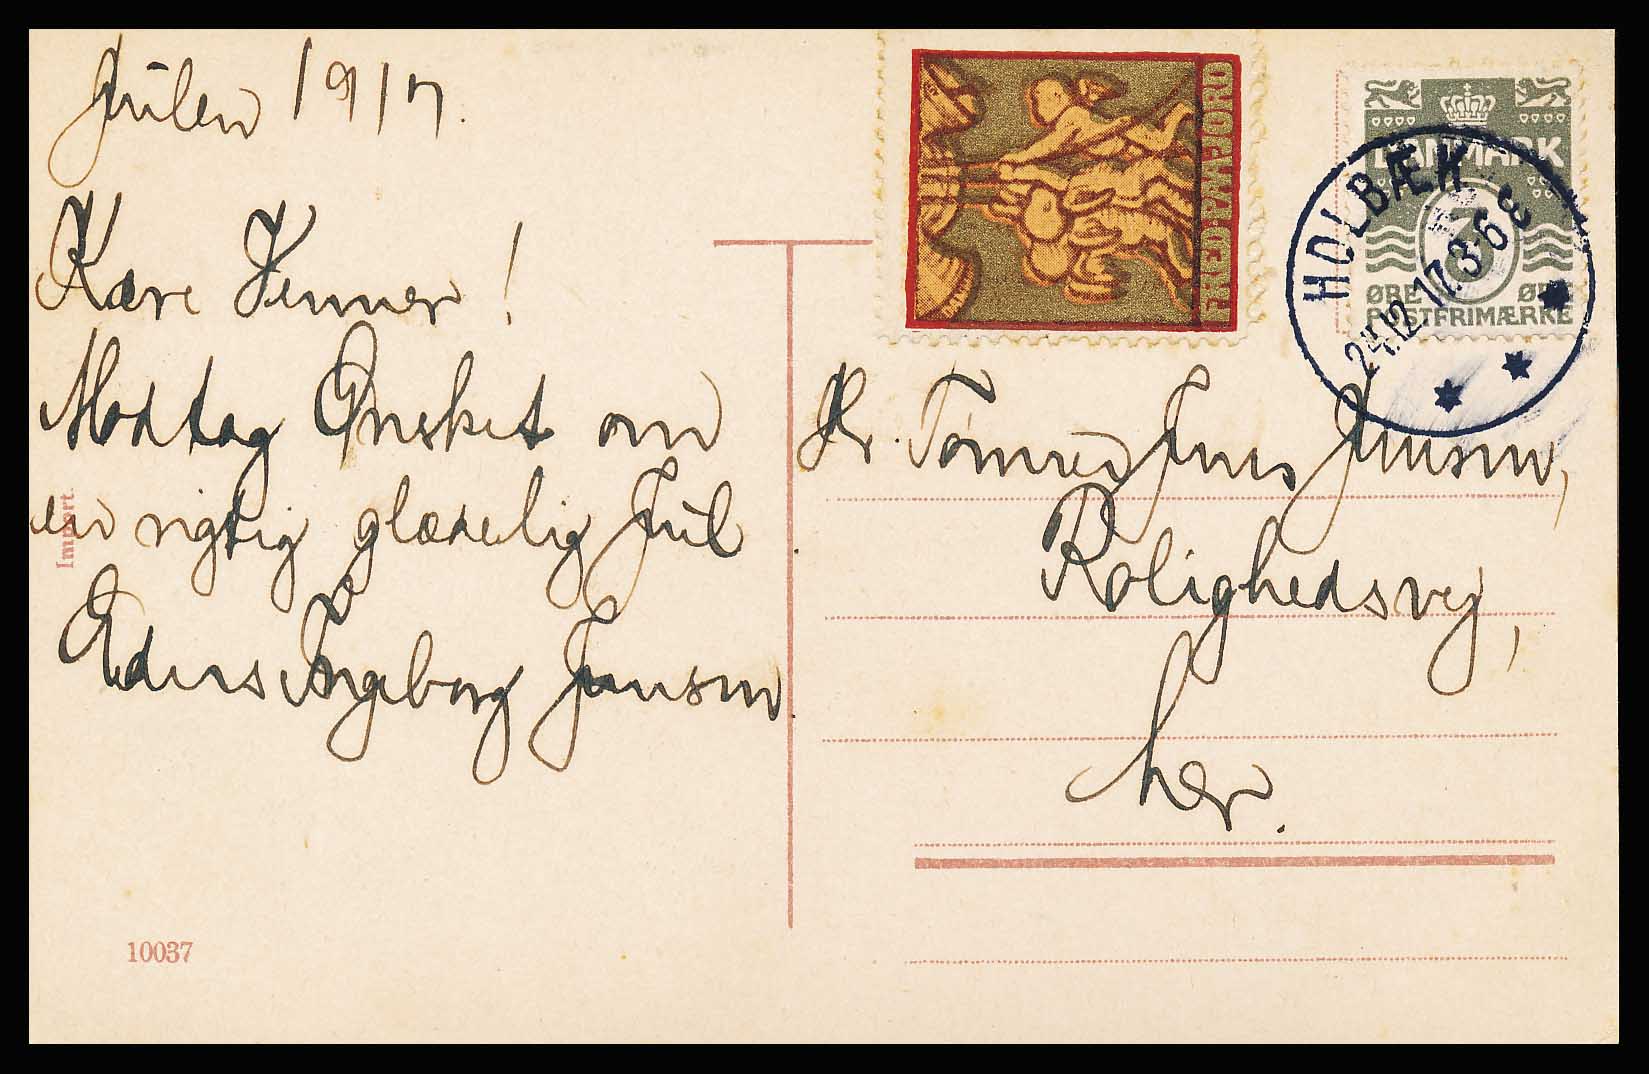 Julen 1917.
Kære Venner!
Modtag Ønsket om
en rigtig glædelig Jul
Eders Ingeborg Jensen
Import.
10037
FRED·PAA·JORD
DANMARK
HOLBÆK
24.12.17. 3-6 E
ØRE ØRE
POSTFRIMÆRKE
Hr. Tømrer Jens Jensen,
Rolighedsvej,
her.